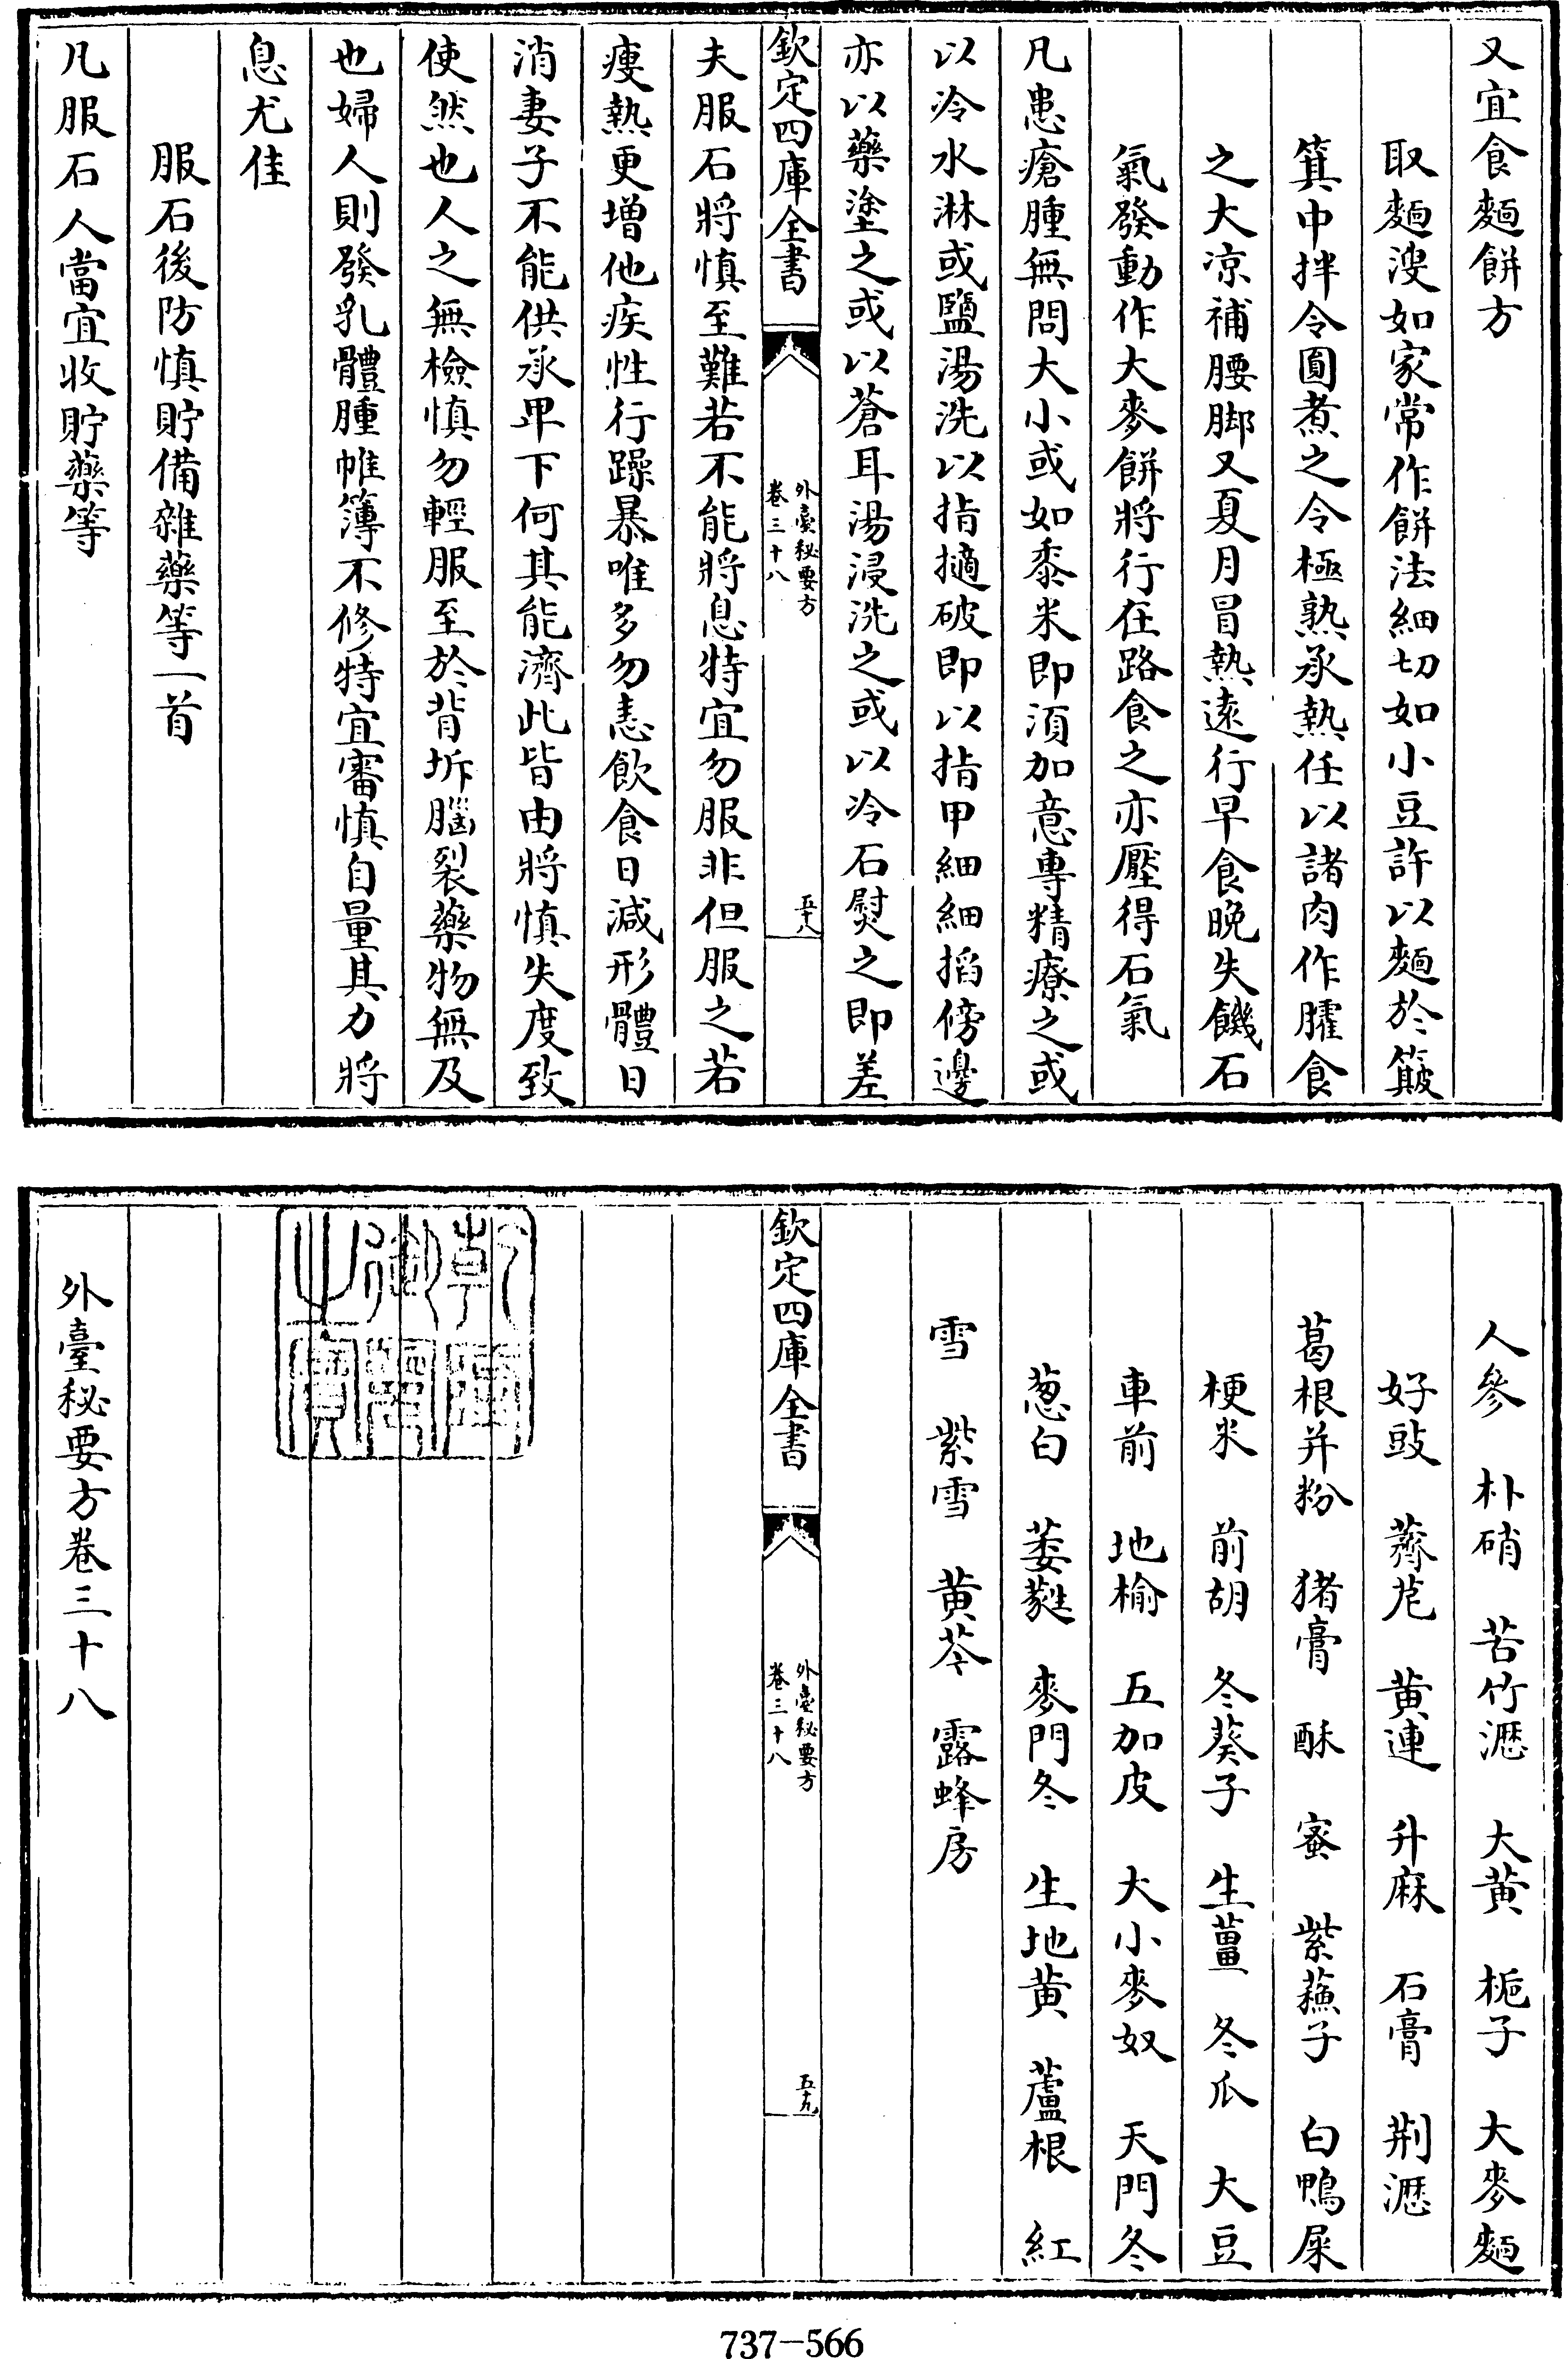 又宜食麪餅方
取麪溲如家常作餅法細切如小豆許以麪於簸
箕中拌令圓煮之令極熟承熱任以諸肉作臛食
之大凉補腰脚又夏月冒熱遠行早食晚失饑石
氣發動作大麥餅將行在路食之亦壓得石氣
凡患瘡腫無問大小或如黍米即湏加意專精療之或
以冷水淋或鹽湯洗以指擿破即以指甲細細搯傍邊
亦以藥塗之或以蒼耳湯浸洗之或以冷石熨之即差
欽定四庫全書
外臺秘要方
卷三十八
五十八
夫服石將慎至難若不能將息特宜勿服非但服之若
瘦熱更增他疾性行躁暴唯多勿恚飲食日減形體日
消妻子不能供承卑下何其能濟此皆由將慎失度致
使然也人之無檢慎勿輕服至於背坼腦裂藥物無及
也婦人則發乳體腫帷簿不修特宜審慎自量其力將
息尤佳
服石後防慎貯備雜藥等一首
凡服石人當宜收貯藥等
人參 朴硝 苦竹瀝 大黄 梔子 大麥麪
好豉 薺苨 黄連 升麻 石膏 荆瀝
葛根并粉 猪膏 酥 蜜 紫蘓子 白鴨屎
粳米 前胡 冬葵子 生薑 冬瓜 大豆
車前 地榆 五加皮 大小麥奴 天門冬
葱白 萎蕤 麥門冬 生地黄 蘆根 紅
雪 紫雪 黄芩 露蜂房
欽定四庫全書
外臺秘要方
卷三十八
五十九
乾隆御覽之寶
外臺秘要方卷三十八
737-566